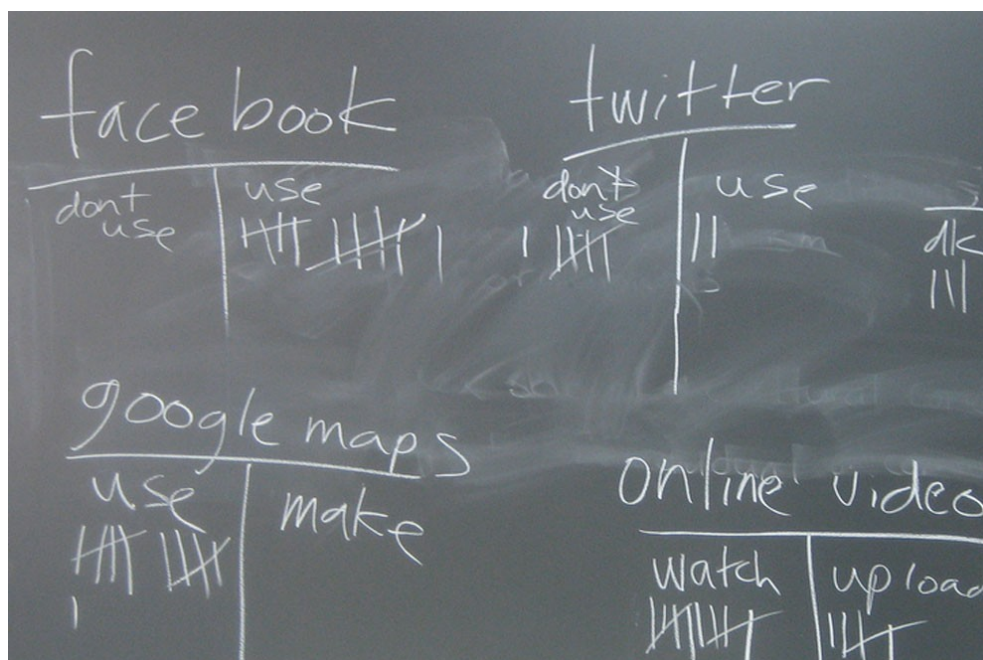 facebook
twitter
dont
use
use
dont
use
use
dk
google maps
use
make
online video
watch
upload